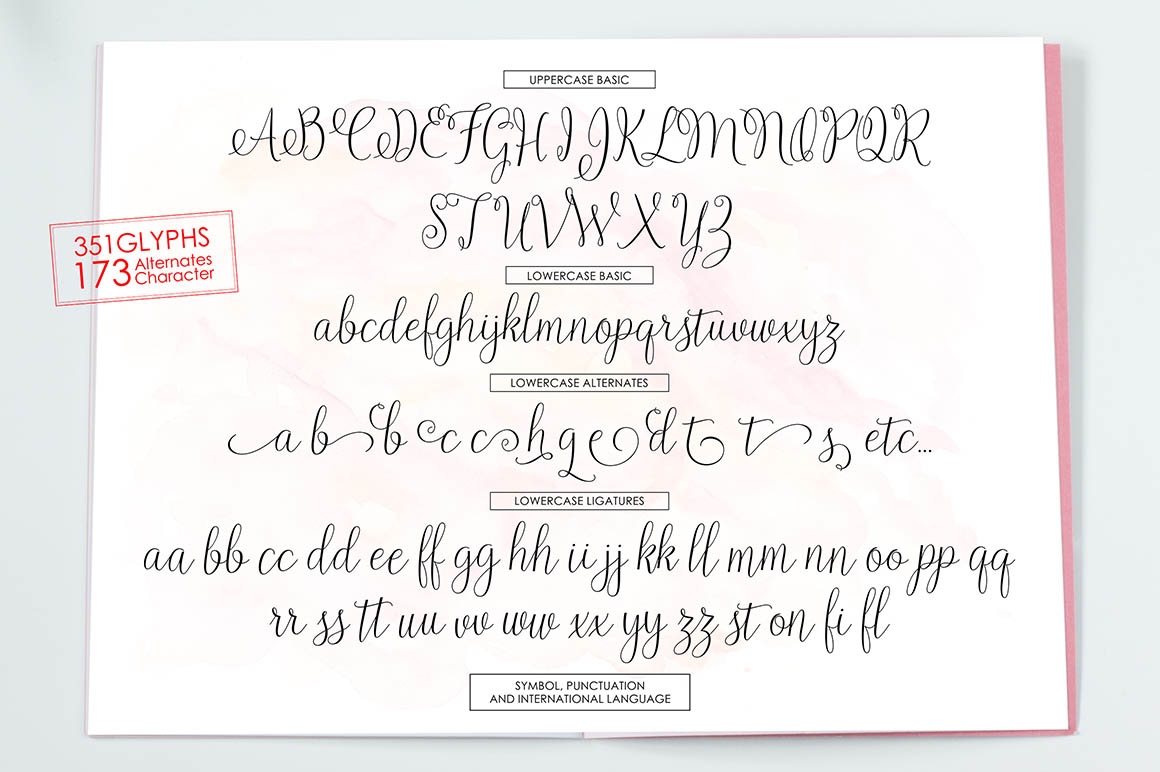 UPPERCASE BASIC
ABCDEFGHIJKLMNOPQR
STUVWXYZ
351GLYPHS
173 Alternates
Character
LOWERCASE BASIC
abcdefghijklmnopqrstuvwxyz
LOWERCASE ALTERNATES
a b b c c h q e d t t s etc...
LOWERCASE LIGATURES
aa bb cc dd ee ff gg hh ii jj kk ll mm nn oo pp qq
rr ss tt uu vv ww xx yy zz st on fi fl
SYMBOL, PUNCTUATION
AND INTERNATIONAL LANGUAGE